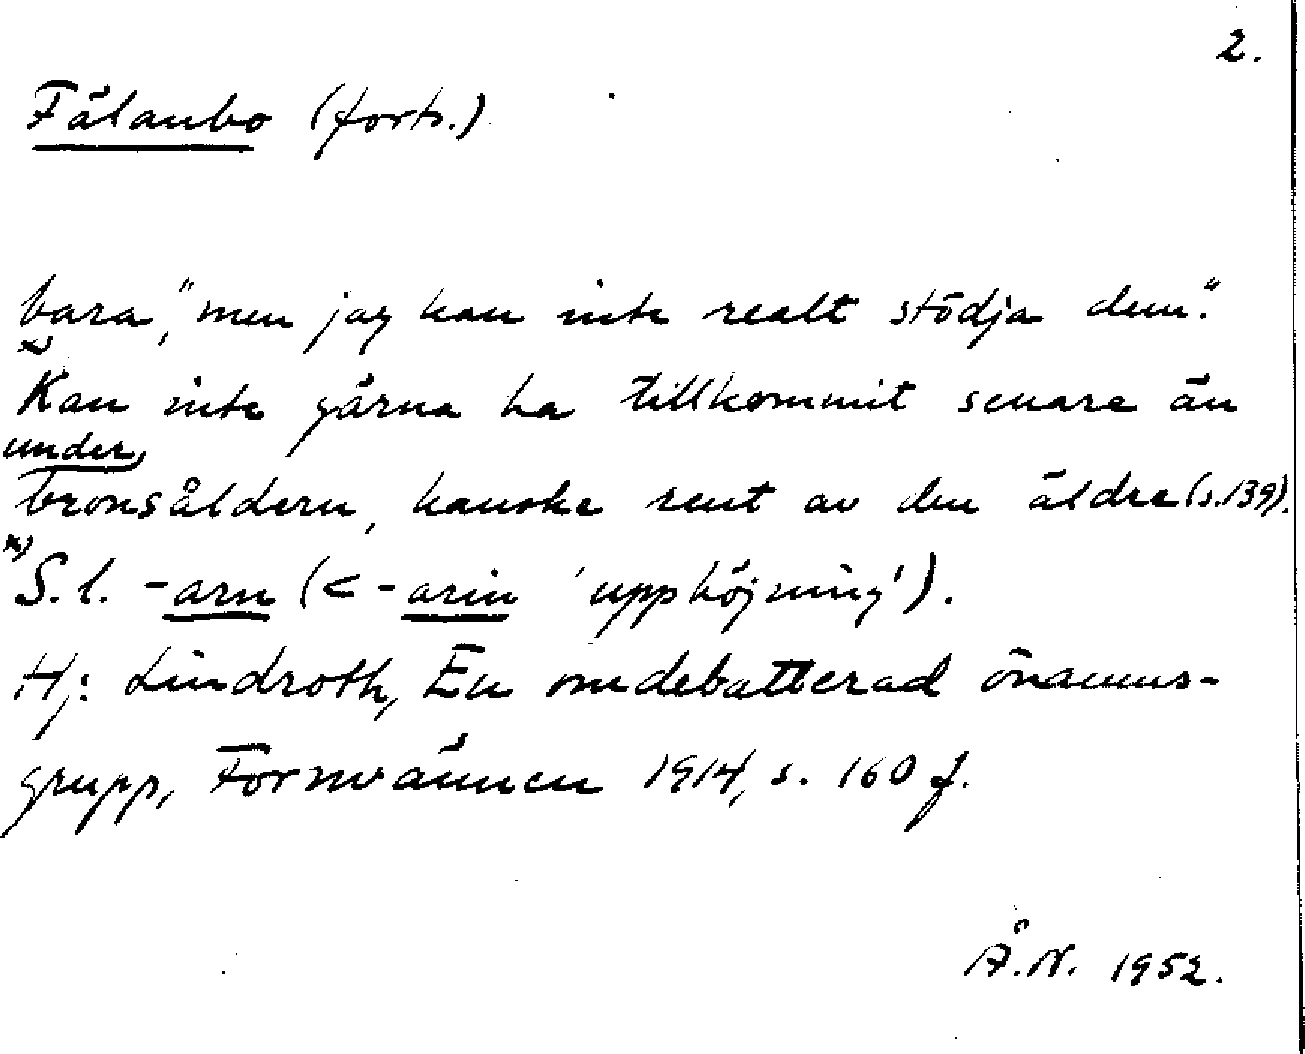 2.
Fålanbo (forts.)
bara, "men jag kan inte realt stödja dem."
x) Kan inte gärna ha tillkommit senare än
under
bronsåldern, kanske rent av den äldre (s. 139).
x) S. l. -arn (< -arin 'upphöjning').
Hj: Lindroth, En omdebatterad önamns-
grupp, Fornvännen 1914, s. 160 f.
Å. N. 1952.